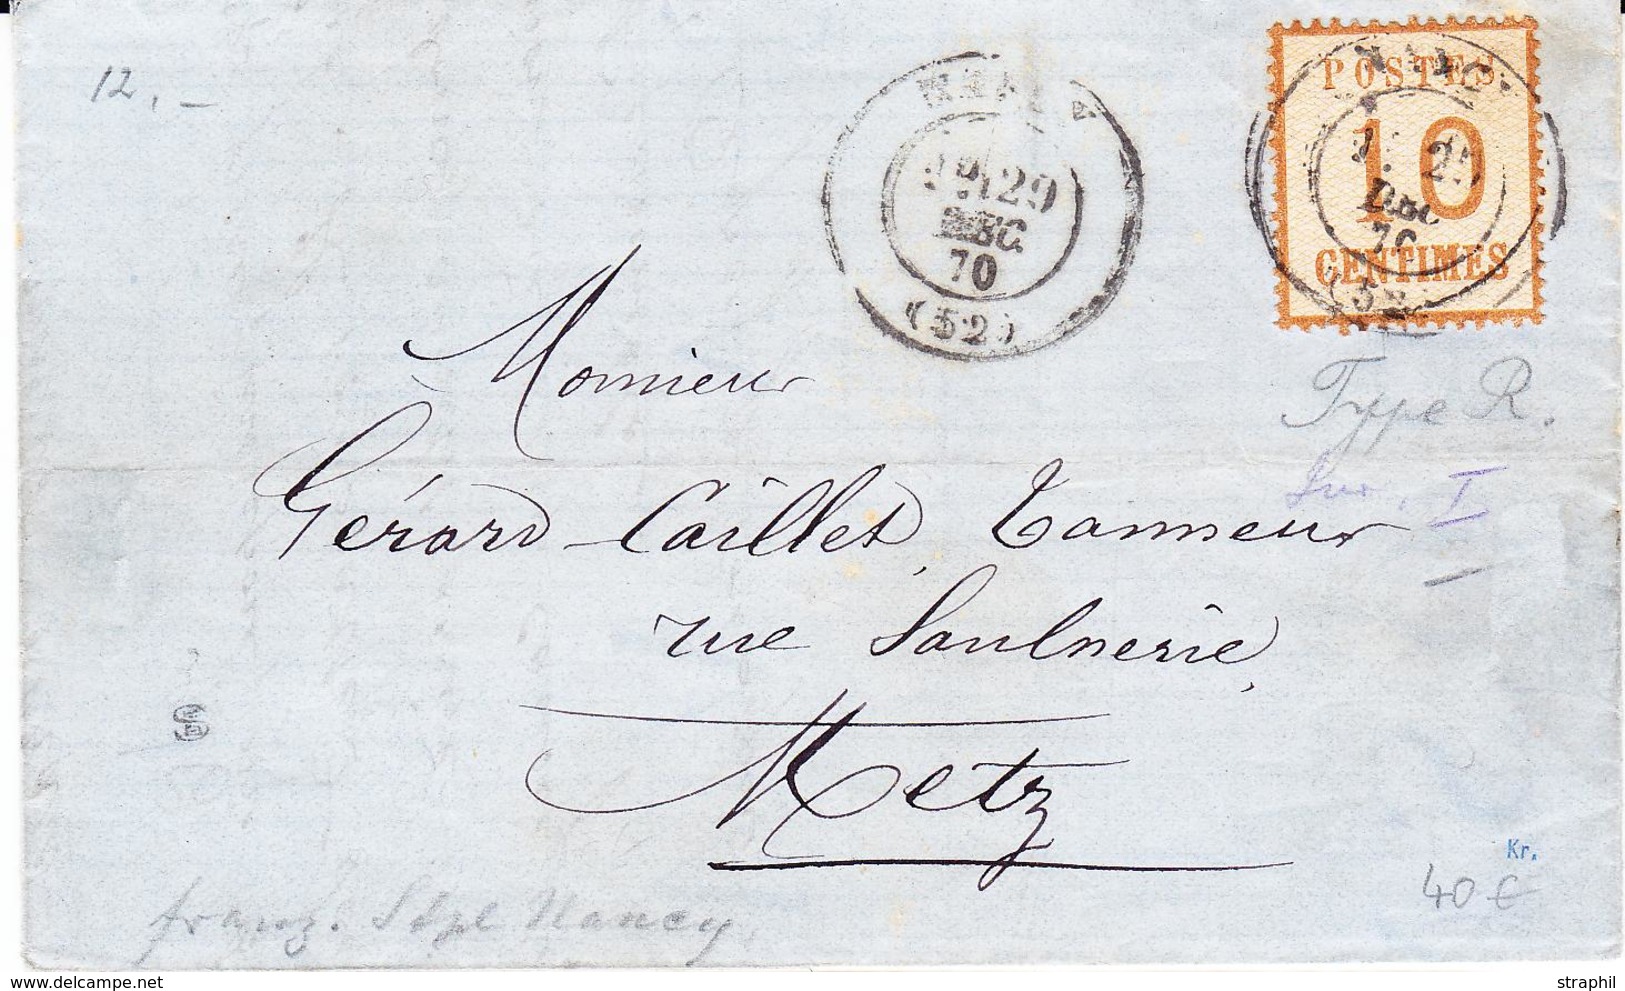 12.-
29
DEC
70
(52)
POSTES
10
CENTIMES
29
DEC
70
Type R.
I
Monsieur
Gérard-Caillet, Tanneur
rue Saulnerie,
Metz
Kr.
40 €
franz. Stpl Nancy
www.delcampe.net
straphil